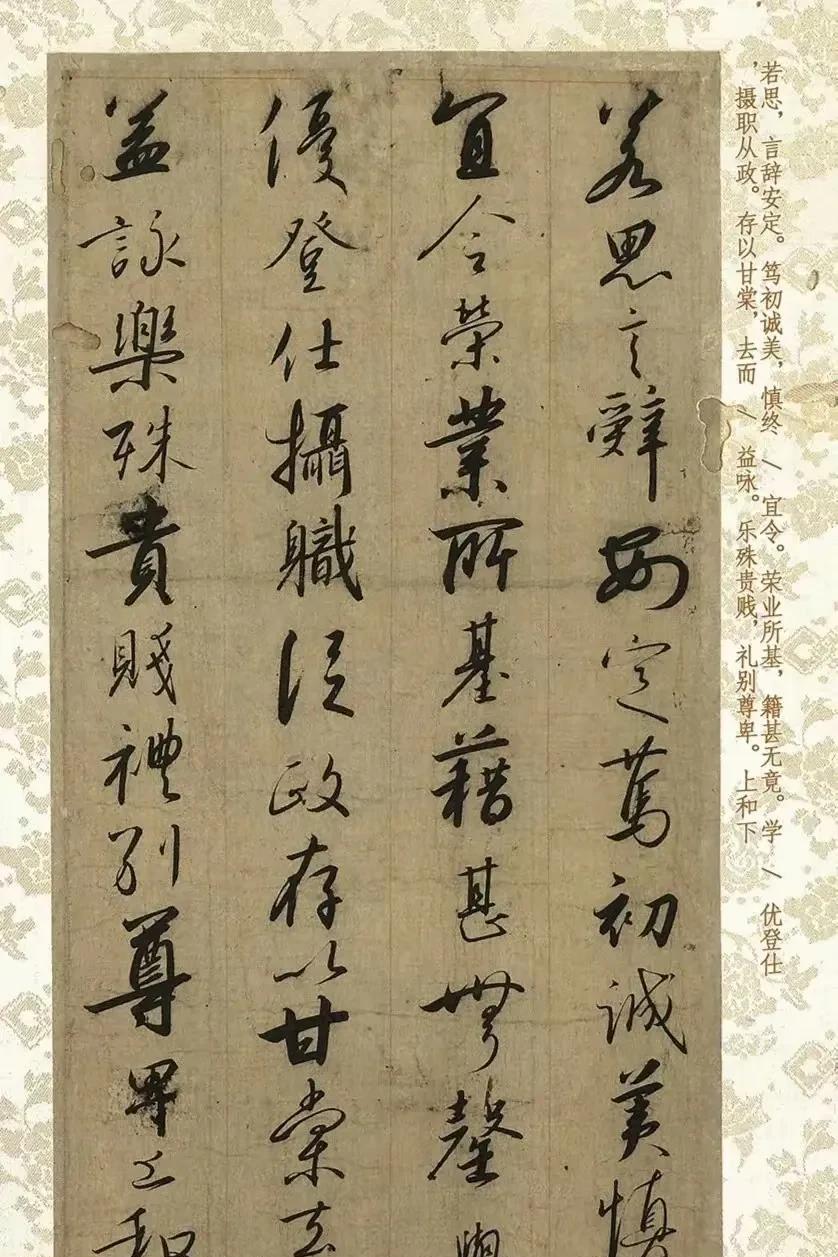 若思，言辞安定。笃初诚美，慎终 / 宜令。荣业所基，籍甚无竟。学 / 优登仕
，摄职从政。存以甘棠，去而 / 益咏。乐殊贵贱，礼别尊卑。上和下
若思言辭安定篤初誠美慎
宜令榮業所基藉甚無學
優登仕攝職從政存以甘棠去
益詠樂殊貴賤禮別尊卑上和